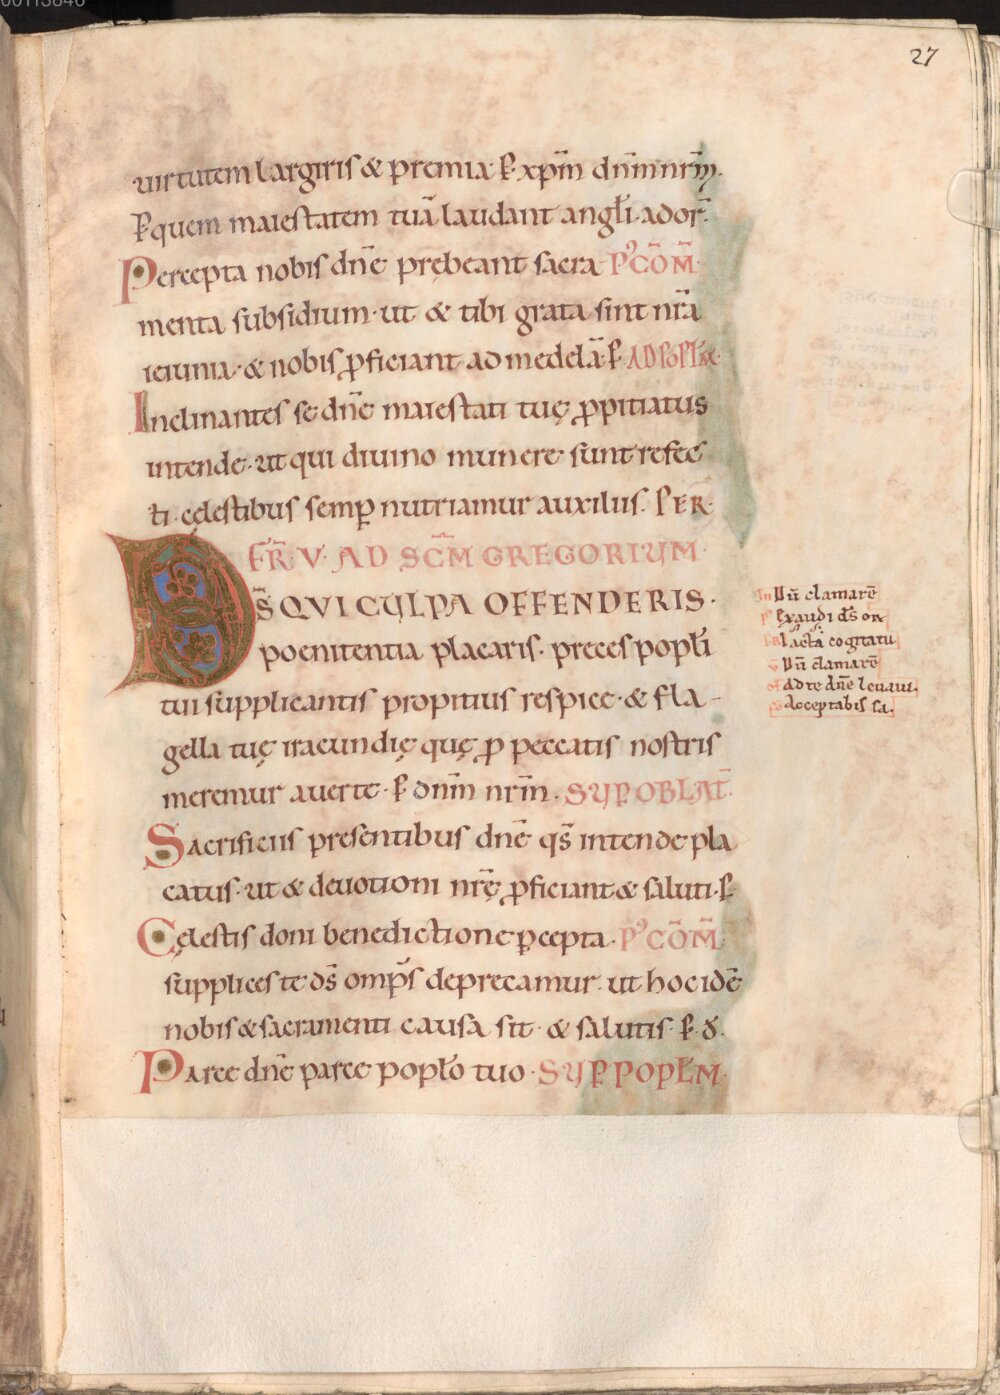 27
uirtutem largiris & premia· P̲ xp̄m dn̄m nr̄m·
P̲quem maiestatem tuā laudant angłi· ador̄·
Percepta nobis dn̄e prębeant sacra P᾿CŌM̄·
menta subsidium· ut & tibi grata sint nr̄a
ieiunia· & nobis ꝓficiant ad medelā· P̲ AD POPŁM·
Inclinantes se dn̄e maiestati tuę ꝓpitiatus
intende· ut qui diuino munere sunt refec
ti· cęlestibus semp̲ nutriamur auxiliis· PER·
FR̄· V· AD SC̄M GREGORIUM·
DS̄ QVI CULPA OFFENDERIS·
poenitentia placaris· preces popłi
tui supplicantis propitius respice· & fla-
gella tuę iracundię quę ꝓ peccatis nostris
meremur auerte· P̲ dn̄m nr̄m· SUP̲ OBLAT̄·
Sacrificiis presentibus dn̄e qs̄ intende pla
catus· ut & deuotioni nr̄ę ꝓficiant & saluti· P̲
Cęlestis doni benedictione p̲cepta· P᾿CŌM̄
supplices te ds̄ omp̄s deprecamur· ut hoc idē
nobis & sacramenti causa sit· & salutis· P̲ d̄·
Parce dn̄e parce popło tuo· SUP̲ POPŁM·
In Dū clamarē
Exaudi ds̄ or
Iacta cogitatū
Dū clamarē
of Ad te dn̄e leuaui·
Acceptabis sa·